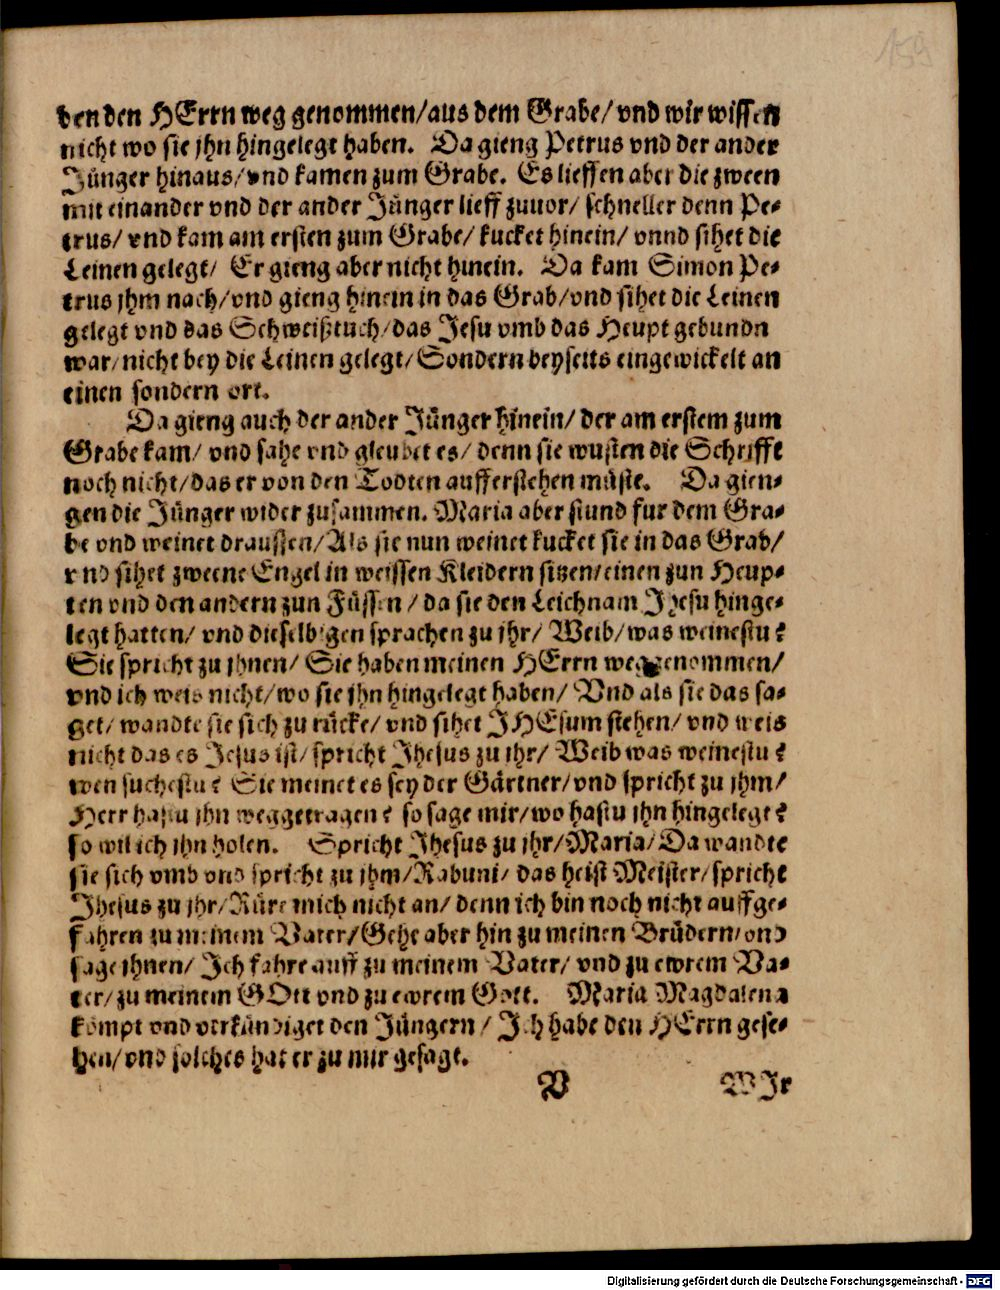 159
den den HErrn weg genommen/aus dem Grabe/ vnd wir wissen
nicht wo sie jhn hingelegt haben. Da gieng Petrus vnd der ander
Jünger hinaus/vnd kamen zum Grabe. Es lieffen aber die zween
mit einander vnd der ander Jünger lieff zuuor/ schneller denn Pe-
trus/ vnd kam am ersten zum Grabe/ kucket hinein/ vnnd sihet die
Leinen gelegt/ Er gieng aber nicht hinein. Da kam Simon Pe-
trus jhm nach/vnd gieng hinein in das Grab/vnd sihet die Leinen
gelegt vnd das Schweißtuch/das Jesu vmb das Heupt gebundn
war/nicht bey die Leinen gelegt/Sondern beyseits eingewickelt an
einen sondern ort.
Da gieng auch der ander Jünger hinein/ der am erstem zum
Grabe kam/ vnd sahe vnd gleubet es/ denn sie wusten die Schrifft
noch nicht/das er von den Todten aufferstehen müste. Da gien-
gen die Jünger wider zusammen. Maria aber stund fur dem Gra-
be vnd weinet draussen/Als sie nun weinet kucket sie in das Grab/
vnd sihet zweene Engel in weissen Kleidern sitzen/einen zun Heup-
ten vnd den andern zun Füssen/ da sie den Leichnam Jhesu hinge-
legt hatten/ vnd dieselbigen sprachen zu jhr/ Weib/was weinestu?
Sie spricht zu jhnen/ Sie haben meinen HErrn weggenommen/
vnd ich weis nicht/wo sie jhn hingelegt haben/ Vnd als sie das sa-
get/ wandte sie sich zu rücke/ vnd sihet JHEsum stehen/ vnd weis
nicht das es Jesus ist/spricht Jhesus zu jhr/ Weib was weinestu?
wen suchestu? Sie meinet es sey der Gärtner/vnd spricht zu jhm/
Herr hastu jhn weggetragen? so sage mir/wo hastu jhn hingelegt?
so wil ich jhn holen. Spricht Jhesus zu jhr/Maria/Da wandte
sie sich vmb vnd spricht zu jhm/Rabuni/ das heist Meister/spricht
Jhesus zu jhr/Rüre mich nicht an/ denn ich bin noch nicht auffge-
fahren zu meinem Vater/Gehe aber hin zu meinen Brüdern/vnd
sage jhnen/ Ich fahre auff zu meinem Vater/ vnd zu ewrem Va-
ter/zu meinem GOtt vnd zu ewrem Gott. Maria Magdalena
kömpt vnd verkündiget den Jüngern/ Ich habe den HErrn gese-
hen/vnd solches hat er zu mir gesagt.
V WJr
Digitalisierung gefördert durch die Deutsche Forschungsgemeinschaft - DFG